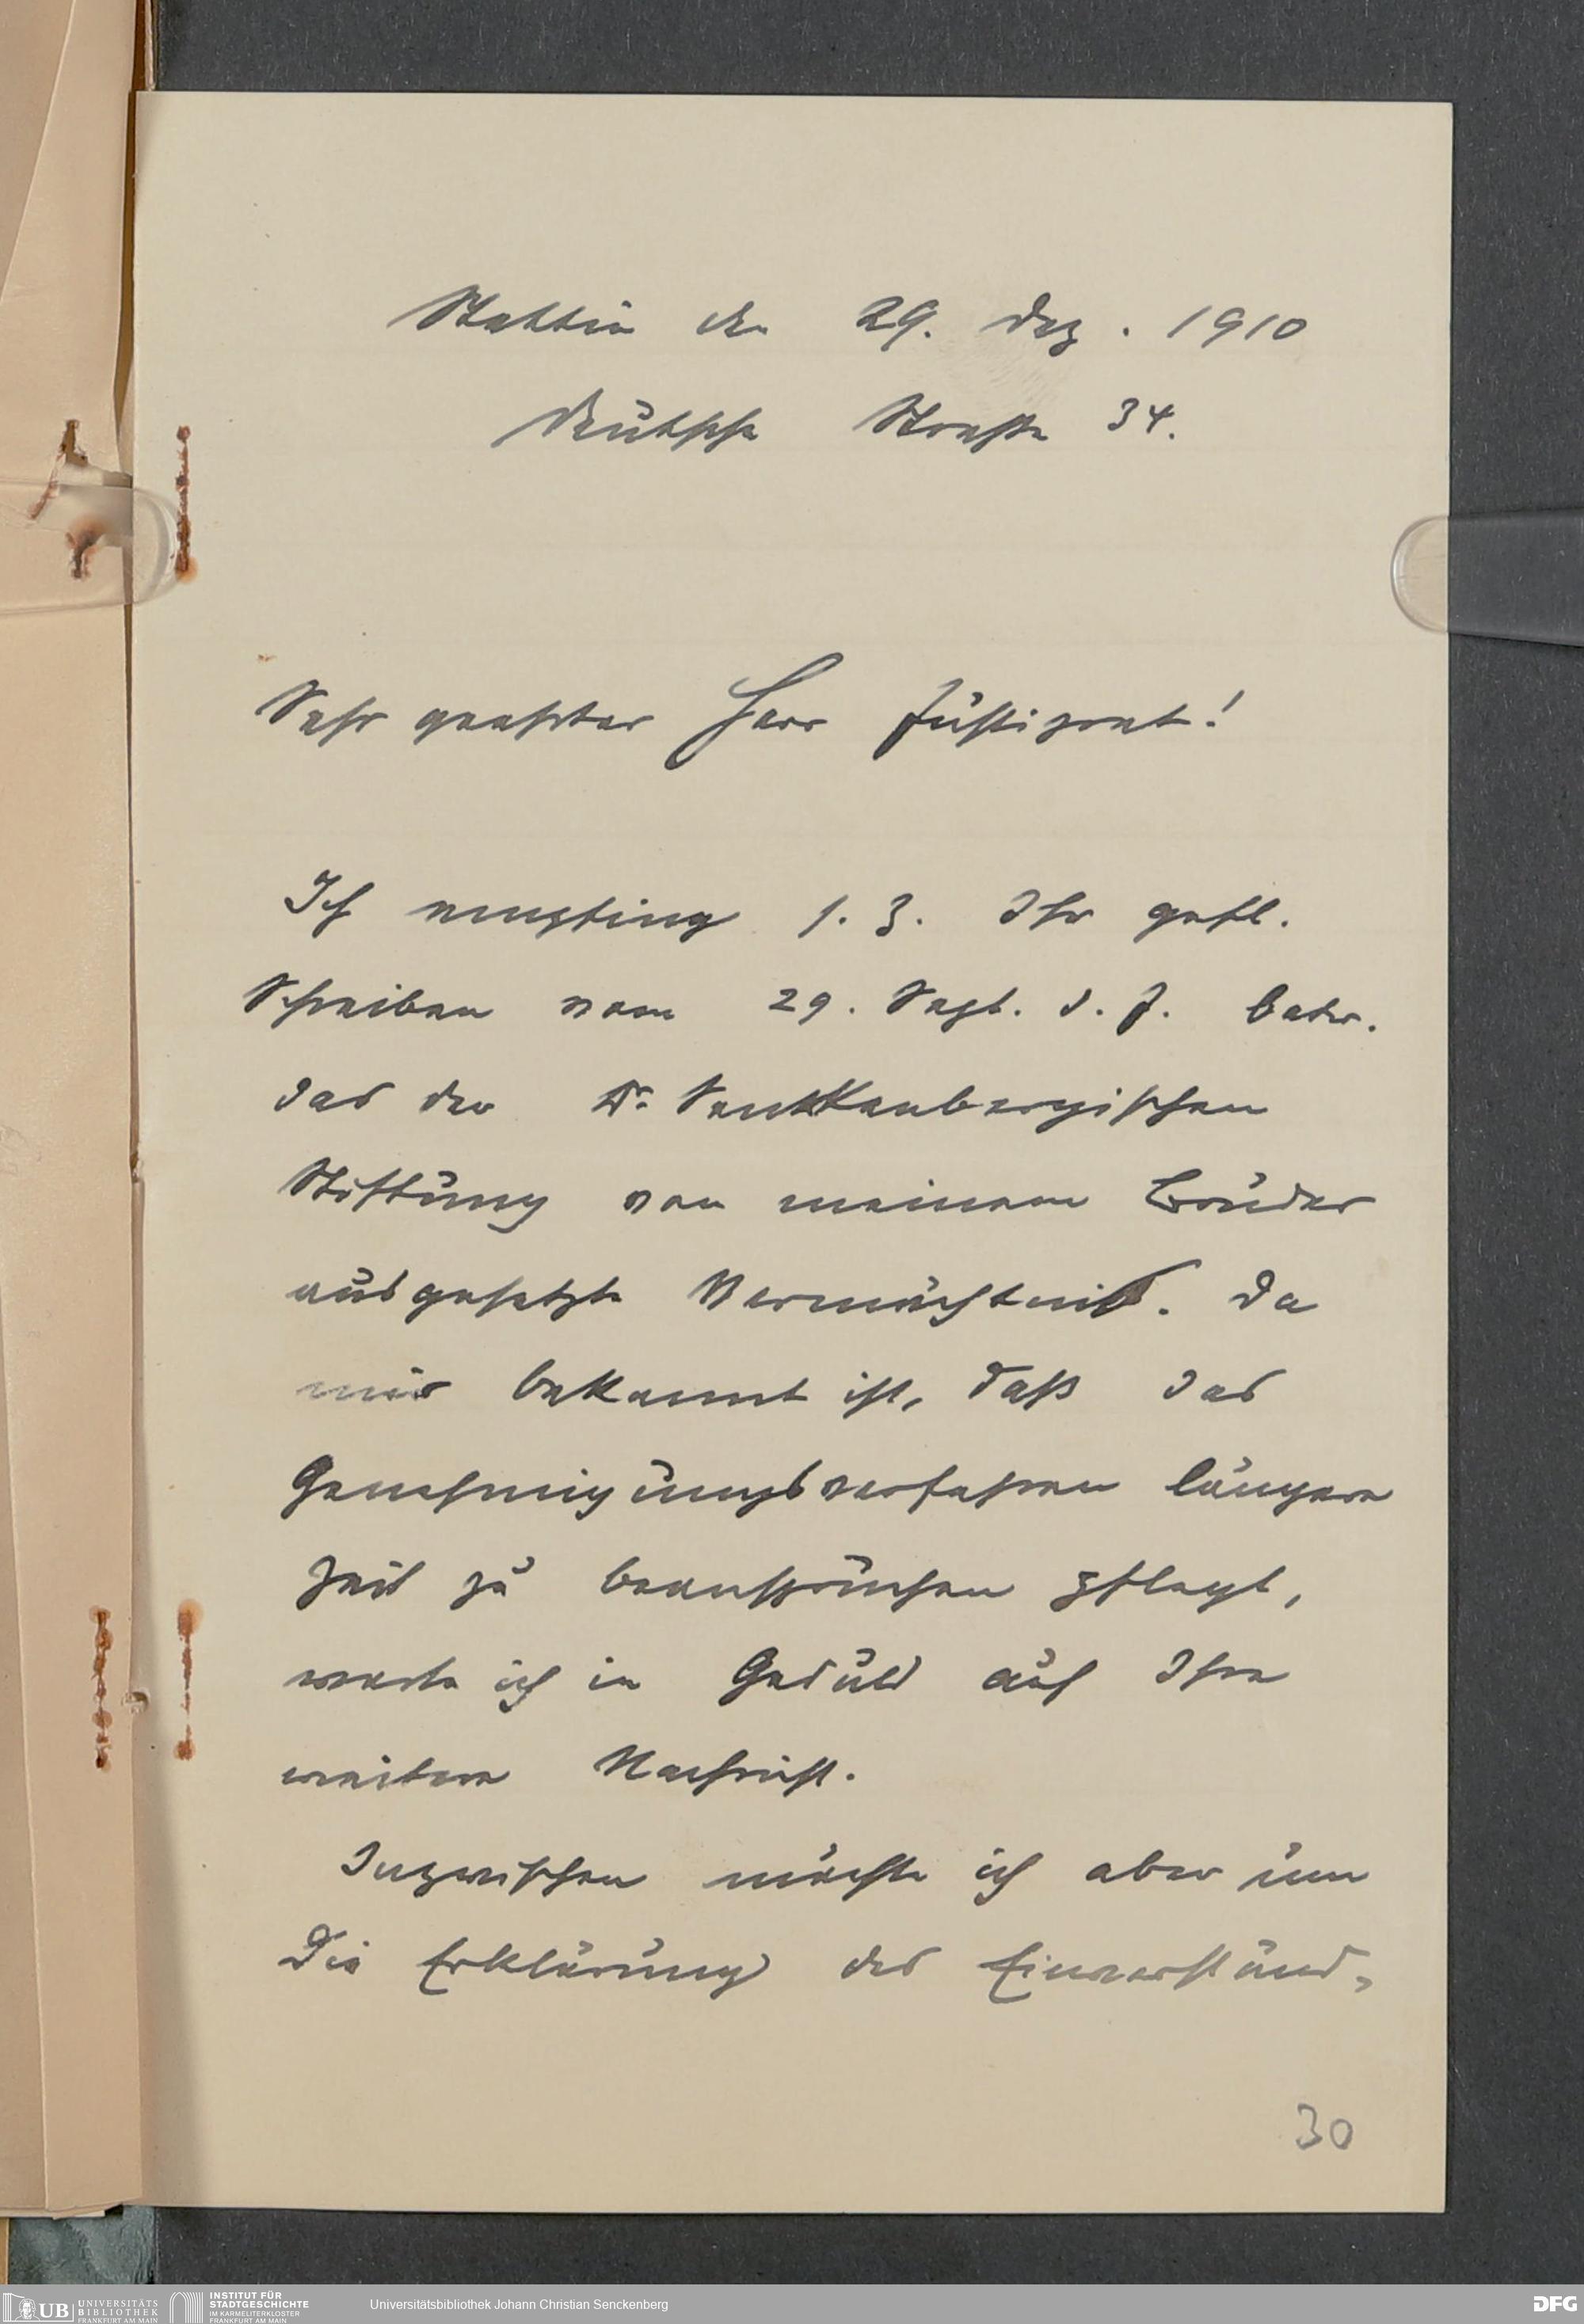 Stettin den 29. Dez. 1910
Deutsche Straße 34.
Sehr geehrter Herr Justizrat!
Ich empfing s. Z. Ihr gefl.
Schreiben vom 29. Sept. d. J. betr.
das der Dr. Senckenbergischen
Stiftung von meinem Bruder
ausgesetzte Vermächtniß. Da
mir bekannt ist, daß das
Genehmigungsverfahren längere
Zeit zu beanspruchen pflegt,
warte ich in Geduld auf Ihre
weitere Nachricht.
Inzwischen möchte ich aber um
die Erklärung des Einverständ-
30
UB UNIVERSITÄTS
BIBLIOTHEK
FRANKFURT AM MAIN
INSTITUT FÜR
STADTGESCHICHTE
IM KARMELITERKLOSTER
FRANKFURT AM MAIN
Universitätsbibliothek Johann Christian Senckenberg
DFG